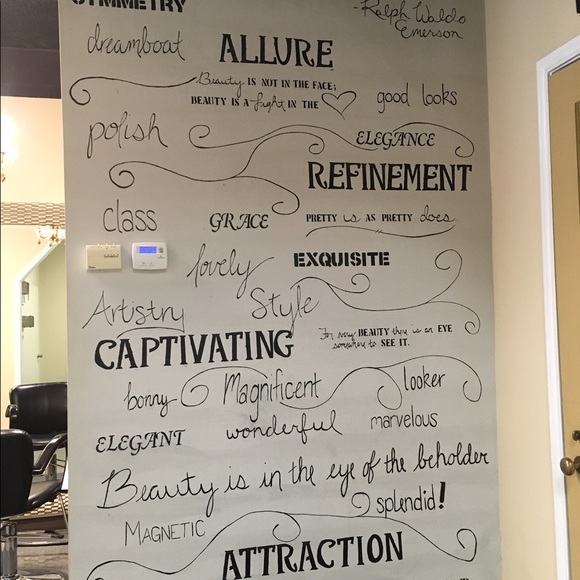 SYMMETRY
-Ralph Waldo
Emerson
dreamboat
ALLURE
Beauty IS NOT IN THE FACE;
BEAUTY IS A light IN THE
good looks
polish
ELEGANCE
REFINEMENT
class
GRACE
PRETTY is AS PRETTY does
lovely
EXQUISITE
Artistry
Style
For every BEAUTY there is an EYE
somewhere to SEE IT.
CAPTIVATING
bonny
Magnificent
looker
ELEGANT
wonderful
marvelous
Beauty is in the eye of the beholder
splendid!
MAGNETIC
ATTRACTION